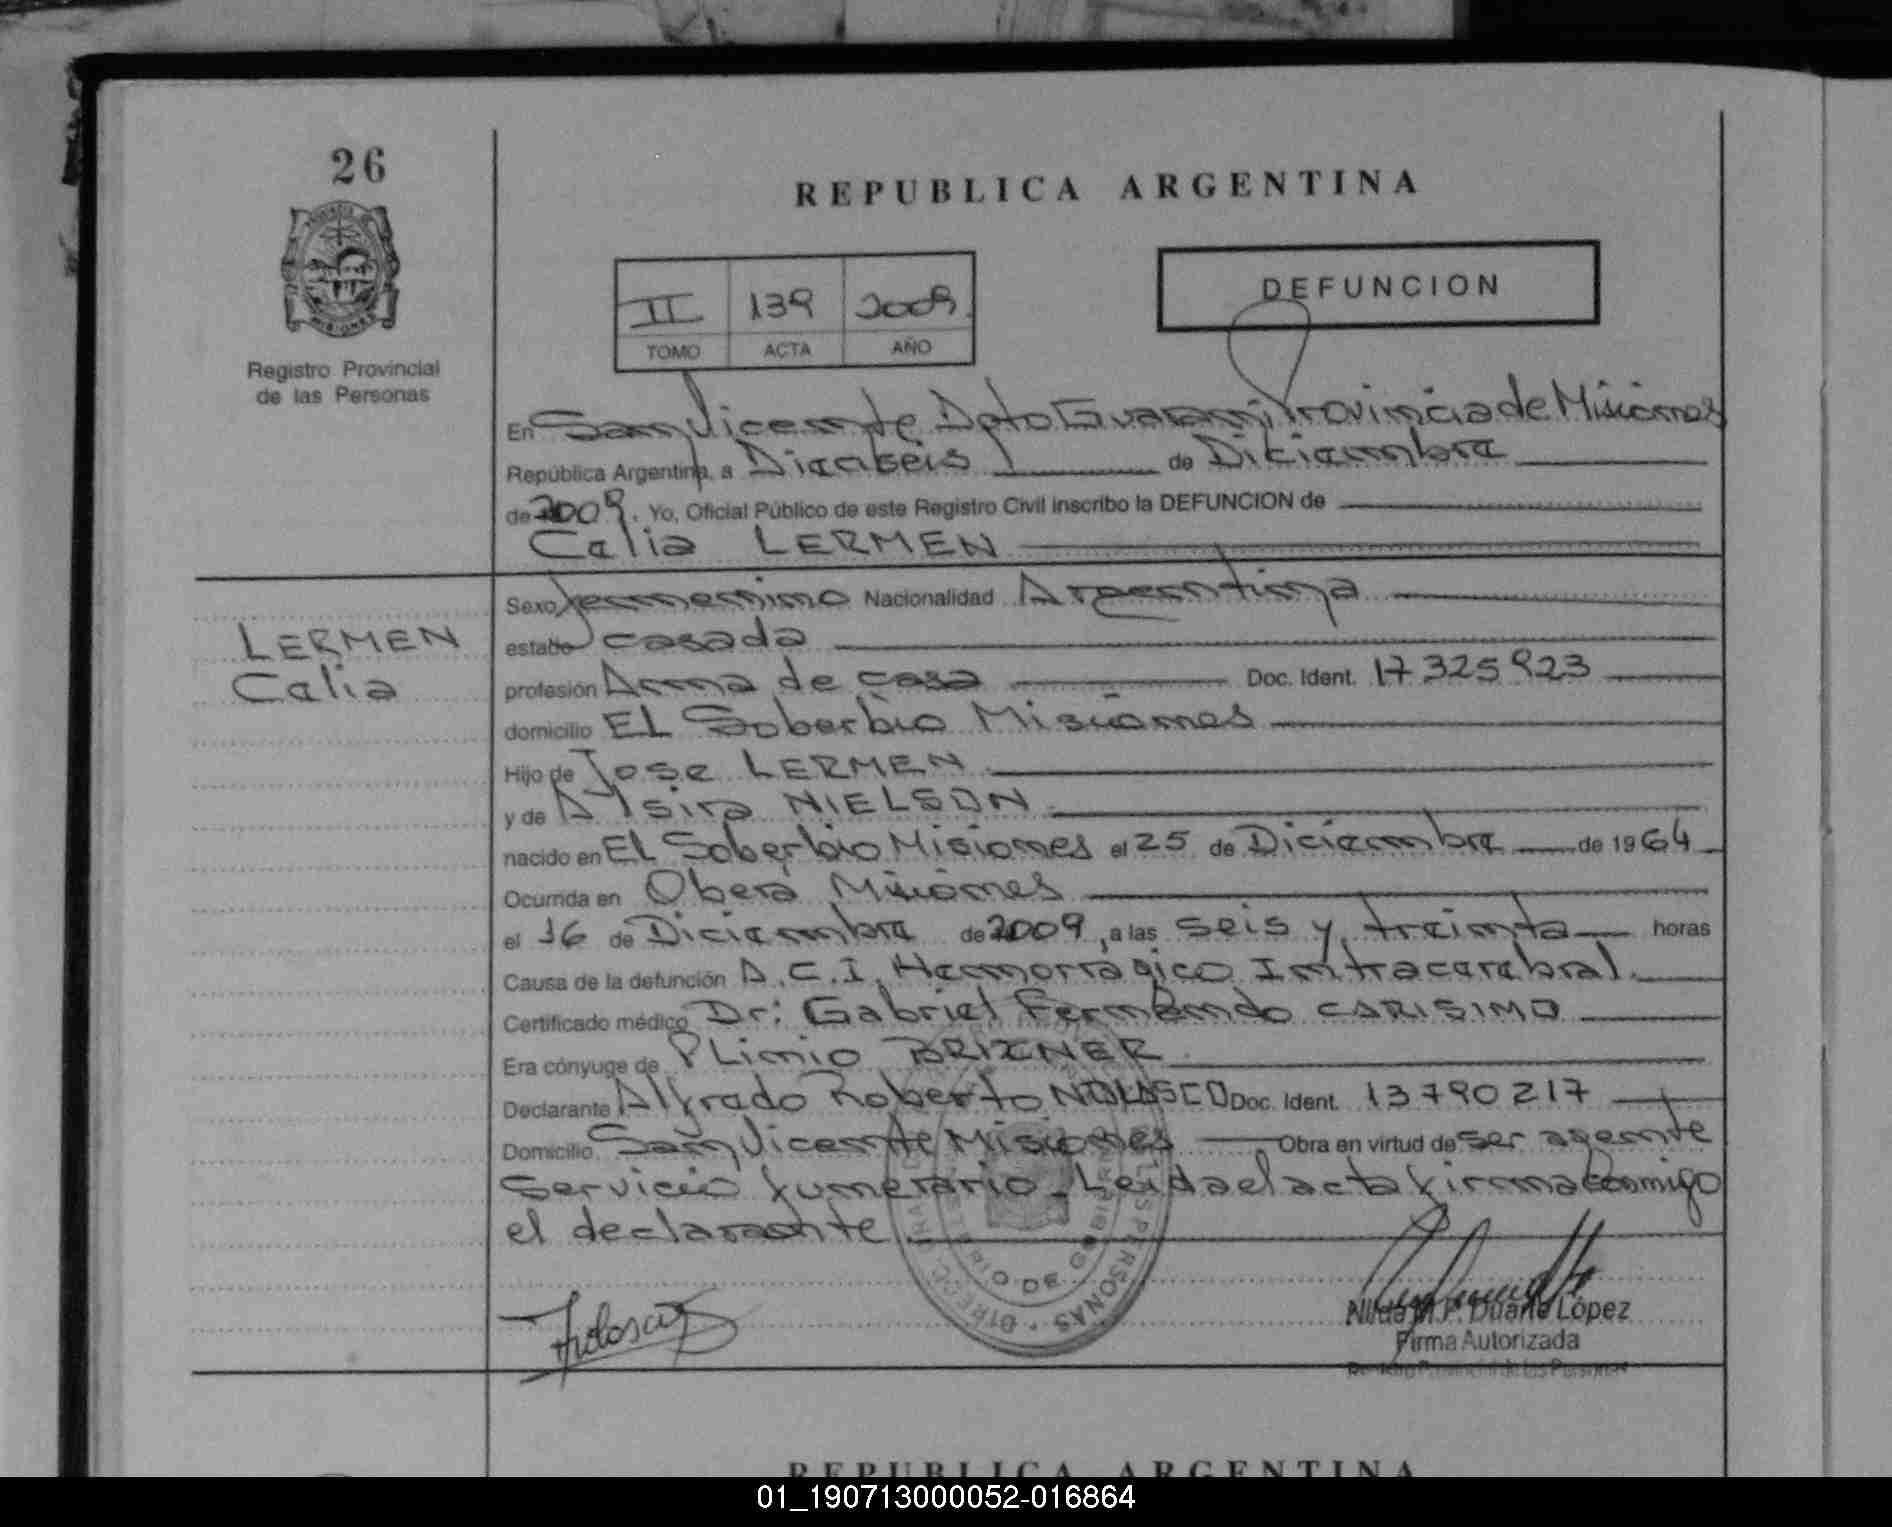 26
REPUBLICA ARGENTINA
II 139 2009
TOMO ACTA AÑO
DEFUNCION
Registro Provincial
de las Personas
En San Vicente Dpto Guarani Provincia de Misiones
República Argentina, a Dieciseis de Diciembre
de 2009. Yo, Oficial Público de este Registro Civil inscribo la DEFUNCION de
Celia LERMEN
LERMEN
Celia
Sexo femenino Nacionalidad Argentina
estado casada
profesión Ama de casa Doc. Ident. 17325923
domicilio EL Soberbio Misiones
Hijo de Jose LERMEN
y de Alsira NIELSON
nacido en EL Soberbio Misiones el 25 de Diciembre de 1964
Ocurrida en Oberá Misiones
el 16 de Diciembre de 2009, a las seis y treinta horas
Causa de la defunción A.C.I. Hemorrágico Intracerebral.
Certificado médico Dr: Gabriel Fernando CARISIMO
Era cónyuge de PLinio BRIXNER
Declarante Alfredo Roberto NOLASCO Doc. Ident. 13790217
Domicilio San Vicente Misiones Obra en virtud de ser agente
servicio funerario. Leida el acta firma conmigo
el declarante
Nilda M.P. Duarte López
Firma Autorizada
Registro Provincial de las Personas
REPUBLICA ARGENTINA
01_190713000052-016864